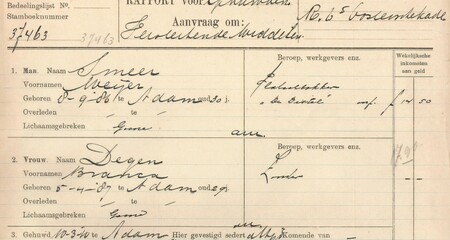 Bedeelingslijst N°.
RAPPORT voor
Stamboeknummer
Aanvraag om:
37463
37463
Beroep, werkgevers enz.
Wekelijksche inkomsten aan geld
1. Man. Naam Smeer
Voornamen Meijer
Geboren 8-9-'86 te A'dam oud 30
"De Textil" f 14 50
Overleden te
Lichaamsgebreken Geene
Beroep, werkgevers enz.
2. Vrouw. Naam Degen
Voornamen Branca
Geboren 5-4-'87 te A'dam oud 29 --
Overleden te
Lichaamsgebreken Geene
3. Gehuwd, 10-3-10 te A'dam Hier gevestigd sedert altijd Komende van